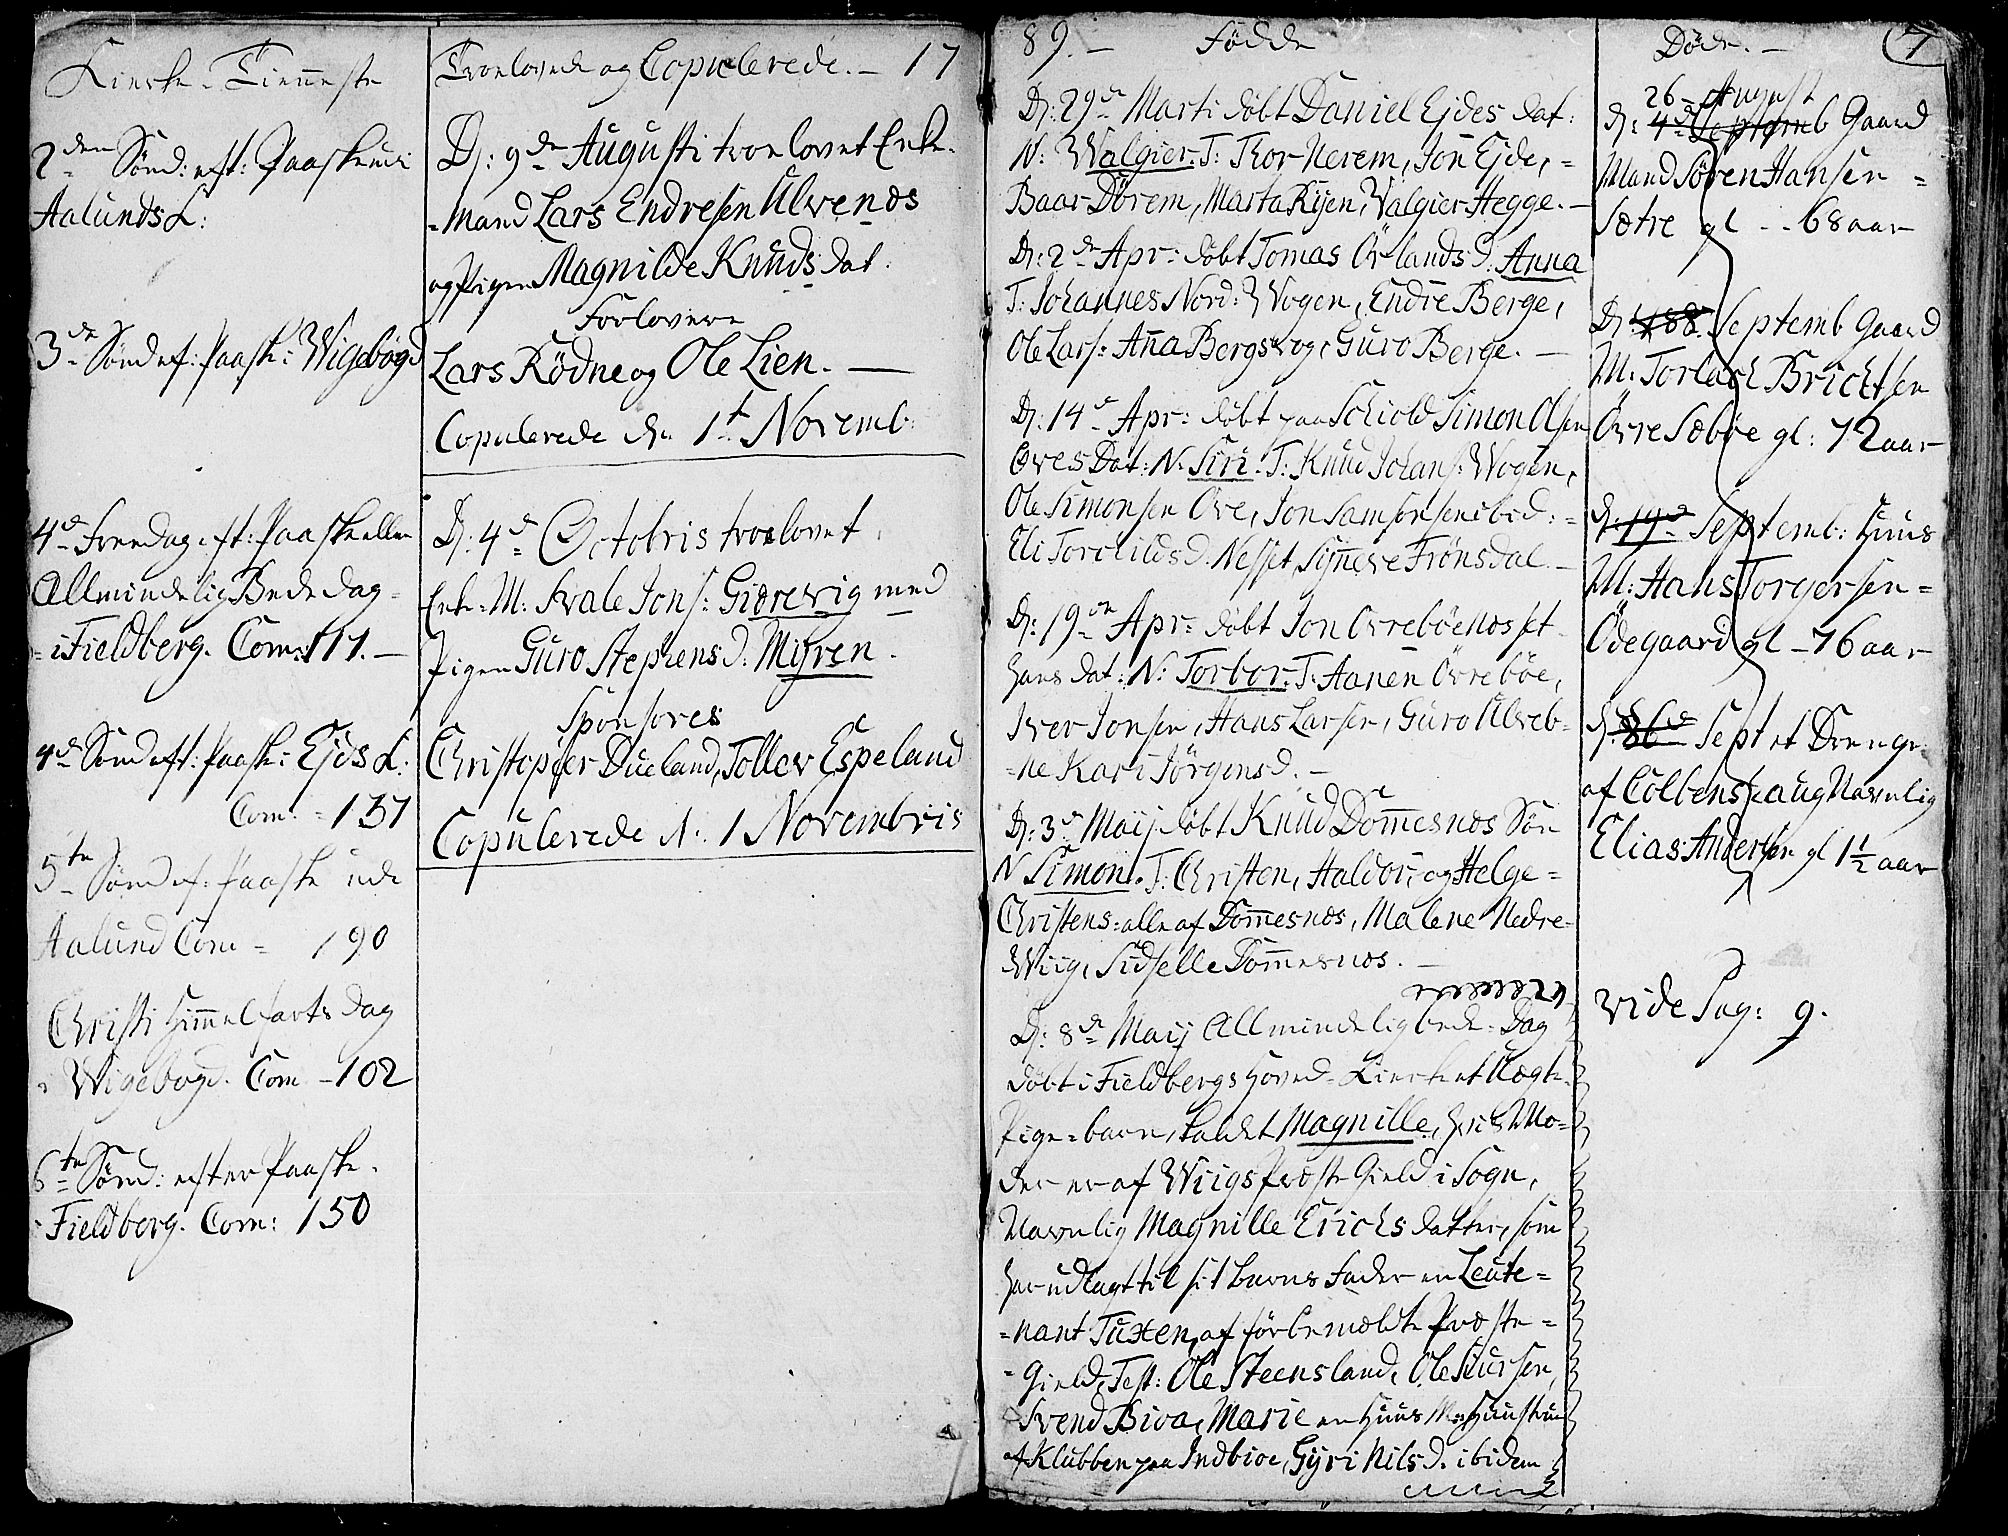 Kirke-Tienneste
2den Sönd: eft: Paaske udi
Aalunds K:
3de Sönd ef: Paask: i Wigebögd
4de Fredag eft: Paaske eller
Allmindelig Bededag
= i Fieldberg. Com: 111. —
4de Sönd eft: Paask: i Ejds K:
Com: = 137
5te Sönd ef: Paaske udi
Aalund Com = 190
Christi Himmelfarts Dag
i Wigebögd. Com - 102
6te Sönd: efter Paaske.
- Fieldberg. Com: 150
Troelovede og Copulerede. — 17
D: 9de Augusti troelovet Enke-
= Mand Lars Endresen Ulvenæs
og Pigen Magnilde Knuds Dat.
Forlovere
Lars Rödne og Ole Lien. —
Copulerede dn 1t Novemb:
D: 4de Octobris troelovet
Enke-M: Svale Jons: Gierevig med
Pigen Guro Stephens D. Myren.
Sponsores
Christopfer Dueland, Tollev Espeland
Copulerede d. 1 Novembris
89. — Födde
D: 29de Marti döbt Daniel Ejdes Dat:
N: Walgier. T: Thor Nerem, Jon Ejde, =
Baar Dörem, Marta Rijen, Valgier Hegge. —
D: 2de Apr: döbt Tomas Örlands D. Anna
T: Johannes Nord: Wogen, Endre Berge,
Ole Lars: Anna Bergs og Guro Berge. —
D: 14de Apr: döbt paa Schiold Simon Olsen
Öves Dat: N: Siri. T: Knud Johans: Wogen,
Ole Simonsen Öve, Jon Samsonsen ibid: =
Eli Torchilds D. Nesset, Signere Frönsdal. —
D: 19de Apr: döbt Jon Övreböenæs et
Hans Dat: N: Torbor. T. Aanen Övreböe,
Iver Jonsen, Hans Larsen, Guro Ulveb-
=ne Kari Jörgens D. —
D: 3de Maij döbt Knud Dommesnæs Sön
N Simon. T: Christen, Haldor, og Helge =
Christens: alle af Dommesnæs, Malene Nedre-
Wiig, Sidselle Dommesnæs. —
D: 8de Maij Allmindelig bede-Dag
döbt i Fieldbergs Hoved-Kirke et Uægte
Pige-barn, kaldet Magnille, hvis Mo-
der er af Wiigs Præste Gield i Sogn,
Navnlig Magnille Erichs datter, som
har udlagt til sit barns Fader en Leute=
=nant Tuxen, af förbemældte Præste=
= Gield, Test: Ole Steensland, Ole Siursen,
Svend Bioa, Marie en Huus M: Huustrue
af Klubben paa Indbioe, Gyri Nils D. ibidem
Döde. — 7
26 - August
d: 4de Septemb Gaard
Mand Sören Hansen =
Sætre gl -- 68 aar
D: 188. Septemb Gaard
M: Torlach Brichtsen
Övre Sæböe gl: 72 aar
d: 19de Septemb: Huus
M: Hans Torgersen =
Ödegaard gl - 76 aar
d: Sept et Drenge
af Colbenskaug Navnlig
Elias Andersen gl 1 1/2 aar
vide Pag: 9.